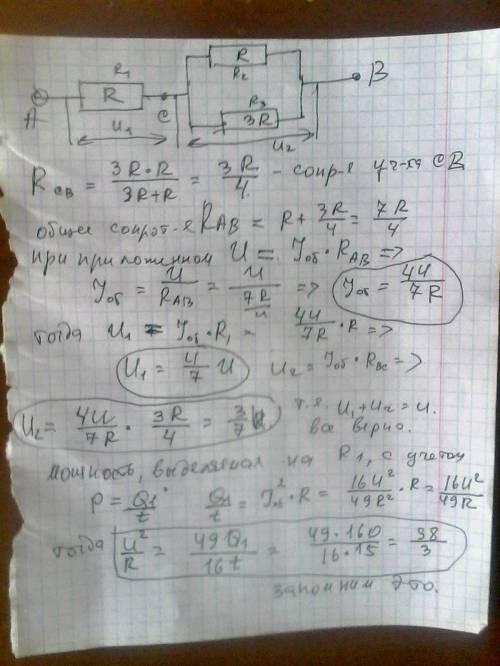 R₁ R R₂ B
A R C R₃ 3R
U₁ U₂
R_CB = 3R·R / 3R+R = 3R/4 - сопр-я уч-ка CB
общее сопрот-е R_AB = R + 3R/4 = 7R/4
при приложенном U = J_об · R_AB =>
J_об = U/R_AB = U / 7R/4 => J_об = 4U/7R
тогда U₁ = J_об · R₁ = 4U/7R · R =>
U₁ = 4/7 U U₂ = J_об · R_BC =>
U₂ = 4U/7R · 3R/4 = 3/7 U т.к. U₁ + U₂ = U.
все верно.
мощность, выделяемая на R₁, с учетом
P = Q₁/t Q₁/t = J_об² · R = 16U²/49R² · R = 16U²/49R
тогда U²/R = 49Q₁/16t = 49·160/16·15 = 98/3
запомним это.